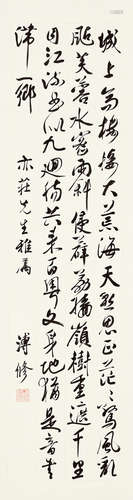 城上高樓接大荒海天愁思正茫茫驚風亂
颭芙蓉水密雨斜侵薜荔牆嶺樹重遮千里
目江流曲似九迴腸共來百粵文身地猶是音書
滯一鄉
亦莊先生雅屬
溥修